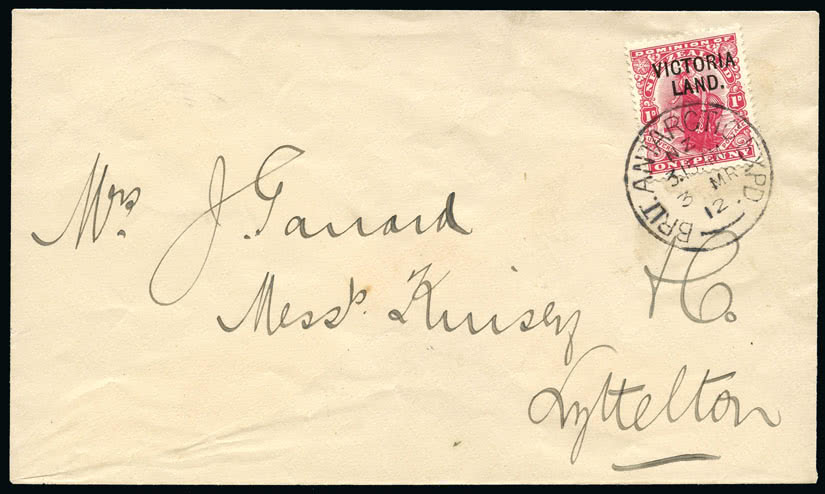 DOMINION OF
NEW ZEALAND
VICTORIA
LAND.
1D 1D
POSTAGE
ONE PENNY
BRIT. ANTARCTIC EXPD
N Z
3 MR
12.
Mrs J. Garrard
Messrs Kinsey & Co.
Lyttelton